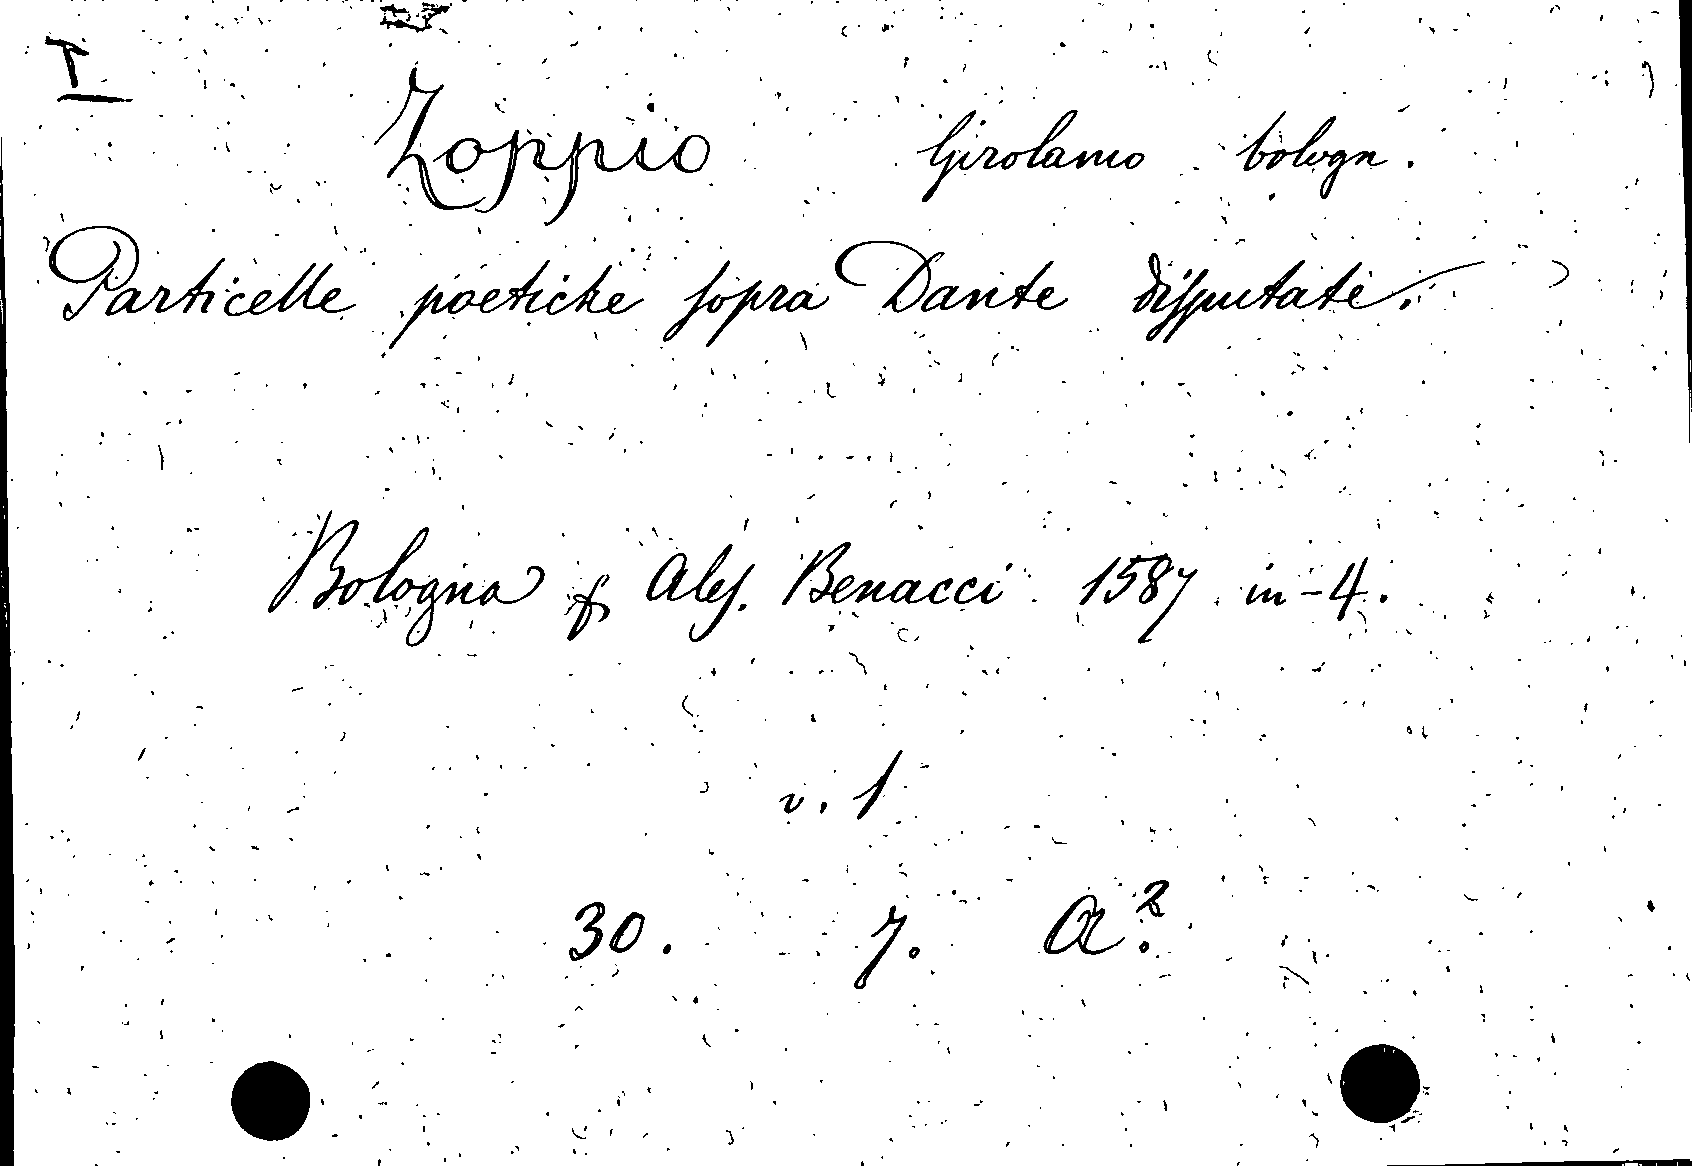 I
Zoppio Girolamo bologn.
Particelle poetiche sopra Dante disputate.
Bologna p Ales. Benacci 1587 in-4.
v. 1
30. 7. A².